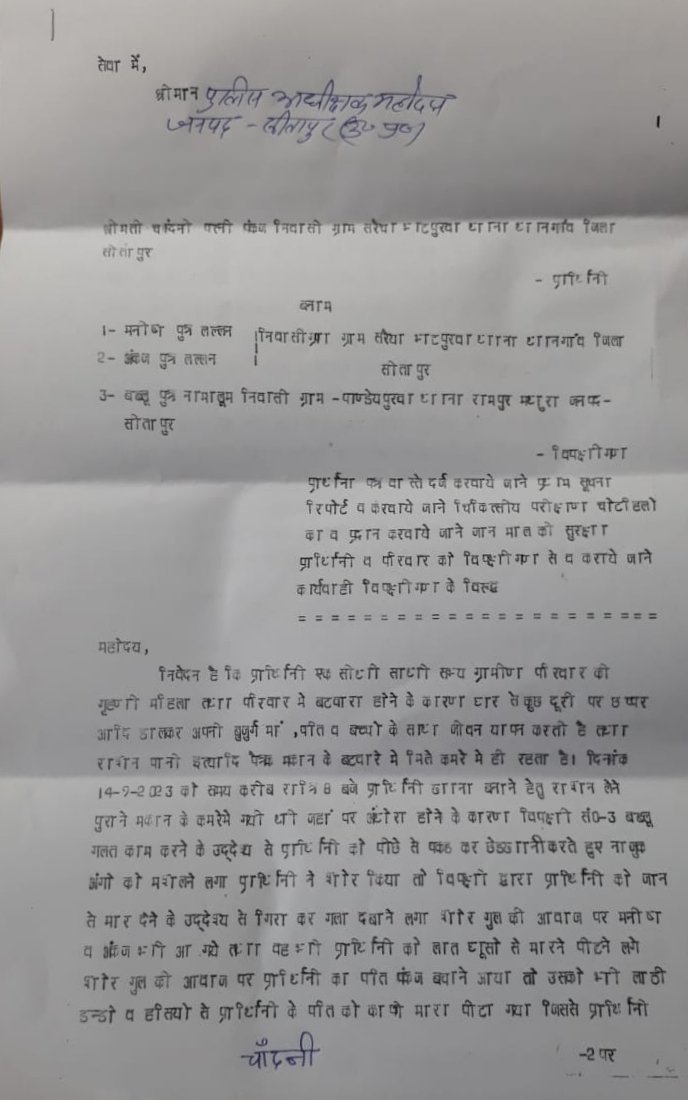 सेवा में,
श्रीमान पुलिस अधीक्षक महोदय
जनपद - सीतापुर (उ० प्र०)
श्रीमती चांदनी पत्नी पंकज निवासी ग्राम सरैया भटपुरवा थाना थानगांव जिला
सीतापुर
- प्रार्थिनी
बनाम
1- मनोज पुत्र लल्लन
निवासीगण ग्राम सरैया भटपुरवा थाना थानगांव जिला
2- अंकज पुत्र लल्लन
सीतापुर
3- बब्लू पुत्र नामालूम निवासी ग्राम -पाण्डेयपुरवा थाना रामपुर मथुरा जनपद-
सीतापुर
- विपक्षीगण
प्रार्थना पत्र वास्ते दर्ज करवाये जाने प्रथम सूचना
रिपोर्ट व करवाये जाने चिकित्सीय परीक्षण चोटहिलो
का व प्रदान करवाये जाने जान माल की सुरक्षा
प्रार्थिनी व परिवार को विपक्षीगण से व कराये जाने
कार्यवाही विपक्षीगण के विरूद्ध
= = = = = = = = = = = = = = = = = = = = = =
महोदय,
निवेदन है कि प्रार्थिनी एक सीधी साधी सभ्य ग्रामीण परिवार की
गृहणी महिला तथा परिवार मे बटवारा होने के कारण घर से कुछ दूरी पर छप्पर
आदि डालकर अपनी बुजुर्ग मां ,पति व बच्चो के साथ जीवन यापन करती है तथा
राशन पानी इत्यादि पैत्रक मकान के बटवारे मे मिले कमरे मे ही रहता है। दिनांक
14-9-2023 को समय करीब रात्रि 8 बजे प्रार्थिनी खाना बनाने हेतु राशन लेने
पुराने मकान के कमरेमे गयी थी जहां पर अंधेरा होने के कारण विपक्षी सं0-3 बब्लू
गलत काम करने के उद्देश्य से प्रार्थिनी को पीछे से पकड कर छेडछानीकरते हुए नाजुक
अंगो को मशलने लगा प्रार्थिनी ने शोर किया तो विपक्षी द्वारा प्रार्थिनी को जान
से मार देने के उद्देश्य से गिरा कर गला दबाने लगा शोर गुल की आवाज पर मनोज
व अंकज भी आ गये तथा वह भी प्रार्थिनी को लात घूसो से मारने पीटने लगे
शोर गुल की आवाज पर प्रार्थिनी का पति पंकज बचाने आया तो उसको भी लाठी
डन्डो व हसियो से प्रार्थिनी के पति को काफी मारा पीटा गया जिससे प्रार्थिनी
चाँदनी
-2 पर